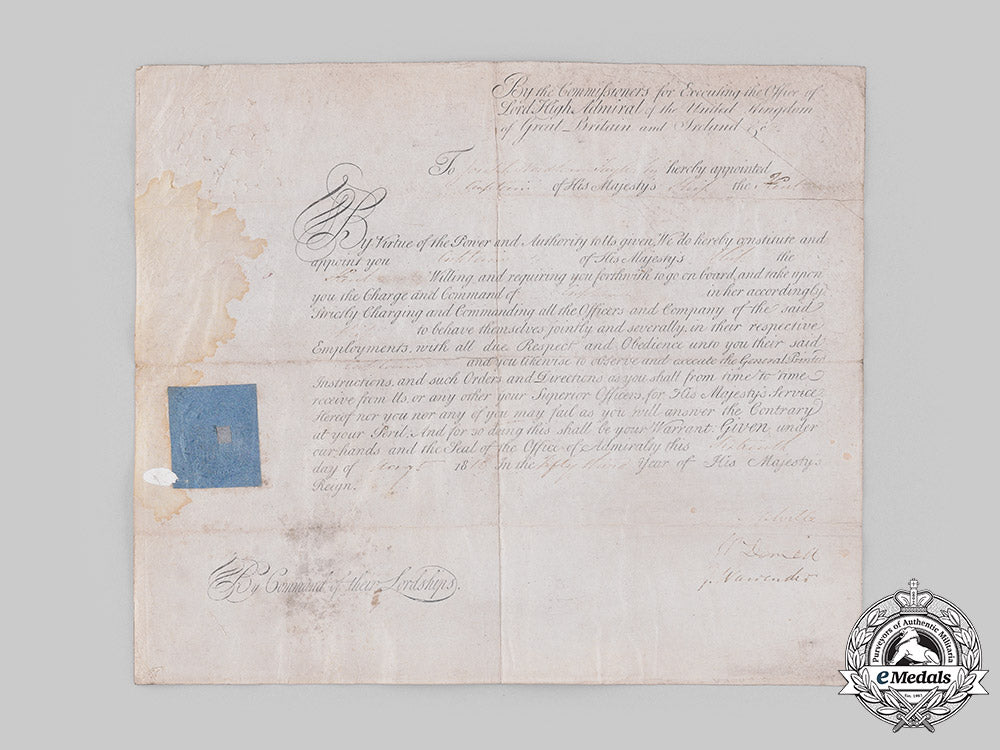 By the Commissioners for Executing the Office of
Lord High Admiral of the United Kingdom
of Great-Britain and Ireland &c.
To Joseph hereby appointed
Captain of His Majesty's the
By Virtue of the Power and Authority to Us given, We do hereby constitute and
appoint you Captain of His Majesty's the
Willing and requiring you forthwith to go on board, and take upon
you the Charge and Command of in her accordingly
Strictly Charging and Commanding all the Officers and Company of the said
to behave themselves jointly and severally, in their respective
Employments, with all due Respect and Obedience unto you their said
Captain and you likewise to observe and execute the General Printed
Instructions, and such Orders and Directions as you shall from time to time
receive from Us, or any other your Superior Officers, for His Majesty's Service
Hereof nor you nor any of you may fail as you will answer the Contrary
at your Peril: And for so doing this shall be your Warrant. Given under
our hands and the Seal of the Office of Admiralty this
day of 18 In the Fifty third Year of His Majesty's
Reign.
Melville
Wm Domett
J Warrender
By Command of their Lordships.
Purveyors of Authentic Militaria
eMedals
Est. 1967